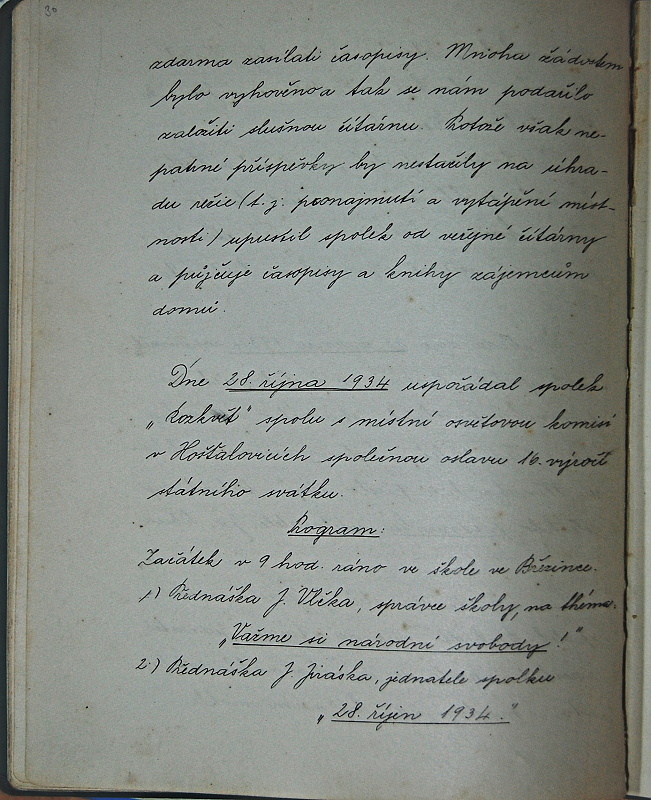 30
zdarma zasílati časopisy. Mnoha žádostem
bylo vyhověno a tak se nám podařilo
založiti slušnou čítárnu. Protože však ne-
patrné příspěvky by nestačily na úhra-
du režie (t. j. pronajmutí a vytápění míst-
nosti) upustil spolek od veřejné čítárny
a půjčuje časopisy a knihy zájemcům
domů.
Dne 28. října 1934 uspořádal spolek
„Rozkvět" spolu s místní osvětovou komisí
v Hošťalovicích společnou oslavu 16. výročí
státního svátku.
Program:
Začátek v 9 hod. ráno ve škole ve Březince.
1.) Přednáška J. Vlčka, správce školy, na théma:
„Važme si národní svobody!"
2.) Přednáška J. Jiráska, jednatele spolku
„28. říjen 1934."